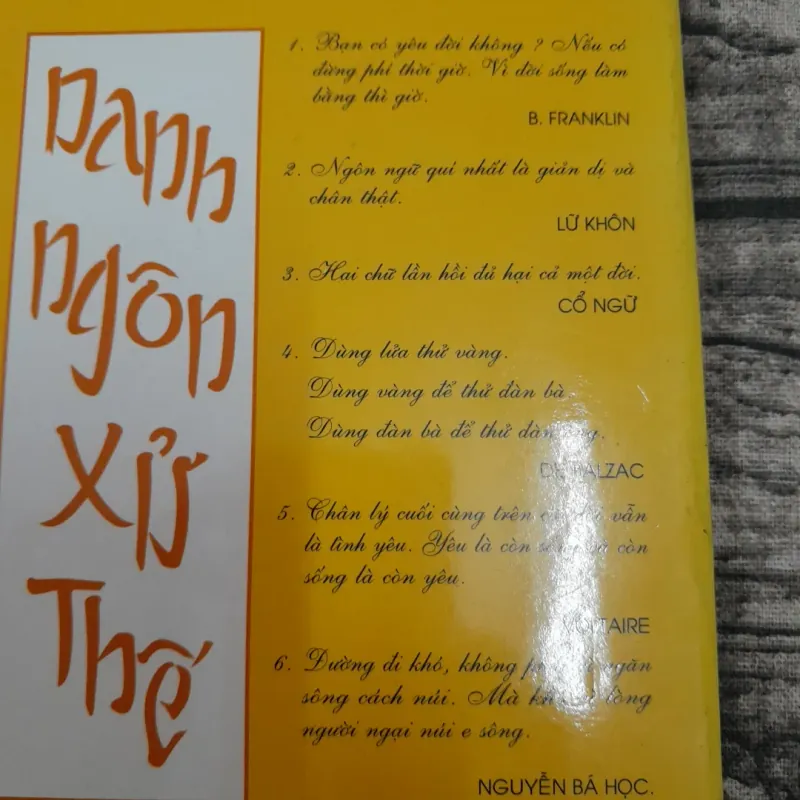 Danh
ngôn
xử
Thế
1. Bạn có yêu đời không ? Nếu có
đừng phí thời giờ. Vì đời sống làm
bằng thì giờ.
B. FRANKLIN
2. Ngôn ngữ quí nhất là giản dị và
chân thật.
LỮ KHÔN
3. Hai chữ lần hồi đủ hại cả một đời.
CỔ NGỮ
4. Dùng lửa thử vàng.
Dùng vàng để thử đàn bà
Dùng đàn bà để thử đàn ông.
DE BALZAC
5. Chân lý cuối cùng trên cõi đời vẫn
là tình yêu. Yêu là còn sống và còn
sống là còn yêu.
VOLTAIRE
6. Đường đi khó, không ngăn
sông cách núi. Mà lòng
người ngại núi e sông.
NGUYỄN BÁ HỌC.